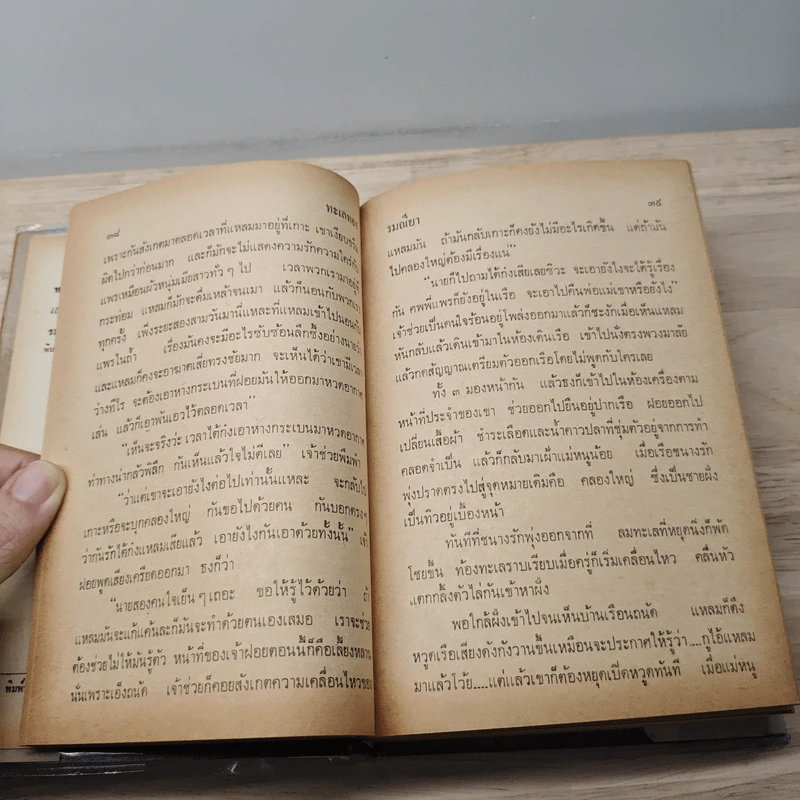 ๓๘ ทะเลทอง
เพราะกันสังเกตมาตลอดเวลาที่แหลมมาอยู่ที่เกาะ เขาเงียบขรึม
ผิดไปกว่าก่อนมาก และก็มักจะไม่แสดงความรักความใคร่กับ
แพรเหมือนผัวหนุ่มเมียสาวทั่ว ๆ ไป เวลาพวกเรามาอยู่ที่
กระท่อม แหลมก็มักจะดื่มเหล้าจนเมา แล้วก็นอนกับพวกเรา
ทุกครั้ง เพิ่งระยะสองสามวันมานี่แหละที่แหลมเข้าไปนอนกับ
แพรในถ้ำ เรื่องมันคงจะมีอะไรซับซ้อนลึกซึ้งอย่างนายว่า
และแหลมก็คงจะอาฆาตเสี่ยทรงชัยมาก จะเห็นได้ว่าเขามีเวลา
ว่างทีไร จะต้องเอาหางกระเบนที่ฝอยมันให้ออกมาหวดอากาศ
เล่น แล้วก็เอาพันเอวไว้ตลอดเวลา”
“เห็นจะจริงว่ะ เวลาไต้ก๋งเอาหางกระเบนมาหวดอากาศ
ท่าทางน่ากลัวพิลึก กันเห็นแล้วใจไม่ดีเลย” เจ้าช่วยพึมพำ
“ว่าแต่เขาจะเอายังไงต่อไปเท่านั้นแหละ จะกลับไป
เกาะหรือจะบุกคลองใหญ่ กันขอไปด้วยคน กันบอกตรง ๆ
ว่ากันรักไต้ก๋งแหลมเสียแล้ว เอายังไงกันเอาด้วยทั้งนั้น” เจ้า
ฝอยพูดเสียงเครียดออกมา ธงก็ว่า
“นายสองคนใจเย็น ๆ เถอะ ขอให้รู้ไว้ด้วยว่า ถ้า
แหลมมันจะแก้แค้นละก็มันจะทำด้วยตนเองเสมอ เราจะช่วย
ต้องช่วยไม่ให้มันรู้ตัว หน้าที่ของเจ้าฝอยตอนนี้ก็คือเลี้ยงหลาน
นั่นเพราะเอ็งถนัด เจ้าช่วยก็คอยสังเกตความเคลื่อนไหวของ
รมณียา ๓๙
แหลมมัน ถ้ามันกลับเกาะก็คงยังไม่มีอะไรเกิดขึ้น แต่ถ้ามัน
ไปคลองใหญ่ต้องมีเรื่องแน่”
“นายก็ไปถามไต้ก๋งเสียเลยซิวะ จะเอายังไงจะได้รู้เรื่อง
กัน ศพพี่แพรก็ยังอยู่ในเรือ จะเอาไปคืนพ่อแม่เขาหรือยังไง”
เจ้าช่วยเป็นคนใจร้อนอยู่โพล่งออกมาแล้วก็ชะงักเมื่อเห็นแหลม
หันกลับแล้วเดินเข้ามาในห้องเดินเรือ เข้าไปนั่งตรงพวงมาลัย
แล้วกดสัญญาณเตรียมตัวออกเรือโดยไม่พูดกับใครเลย
ทั้ง ๓ มองหน้ากัน แล้วธงก็เข้าไปในห้องเครื่องตาม
หน้าที่ประจำของเขา ช่วยออกไปยืนอยู่ปากเรือ ฝอยออกไป
เปลี่ยนเสื้อผ้า ชำระเลือดและน้ำคาวปลาที่ชุ่มตัวอยู่จากการทำ
คลอดจำเป็น แล้วก็กลับมาเฝ้าแม่หนูน้อย เมื่อเรือชนางรัก
พุ่งปราดตรงไปสู่จุดหมายเดิมคือ คลองใหญ่ ซึ่งเป็นชายฝั่ง
เป็นทิวอยู่เบื้องหน้า
ทันทีที่ชนางรักพุ่งออกจากที่ ลมทะเลที่หยุดนิ่งก็พัด
โชยขึ้น ท้องทะเลราบเรียบเมื่อครู่ก็เริ่มเคลื่อนไหว คลื่นหัว
แตกกลิ้งตัวไล่กันเข้าหาฝั่ง
พอใกล้ฝั่งเข้าไปจนเห็นบ้านเรือนถนัด แหลมก็ดึง
หวูดเรือเสียงดังกังวานขึ้นเหมือนจะประกาศให้รู้ว่า....กูไอ้แหลม
มาแล้วโว้ย....แต่แล้วเขาก็ต้องหยุดเปิดหวูดทันที เมื่อแม่หนู
พิมพ์